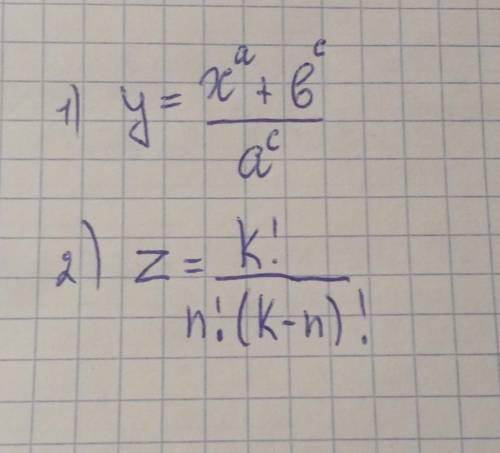 1) y = (x^a + b^c) / a^c
2) z = k! / n!(k-n)!